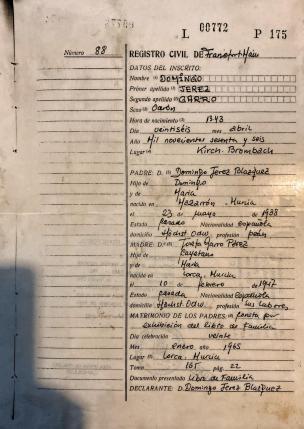 L 00772 P 175
Número 88
REGISTRO CIVIL DE Frankfurt/Main
DATOS DEL INSCRITO:
Nombre DOMINGO
Primer apellido JEREZ
Segundo apellido GARRO
Sexo Varón
Hora de nacimiento 13.43
Día veintiséis mes abril
Año Mil novecientos setenta y seis
Lugar Kirch. Brombach
PADRE: D. Domingo Jerez Blazquez
Hijo de Domingo
y de María
nacido en Mazarrón, Murcia
el 23 de mayo de 1938
Estado casado Nacionalidad española
domicilio Höchst Odw. profesión peón
MADRE: D.ª Josefa Garro Pérez
Hija de Cayetano
y de María
nacida en Lorca, Murcia
el 10 de febrero de 1947
Estado casada Nacionalidad española
domicilio Höchst Odw. profesión sus labores
MATRIMONIO DE LOS PADRES consta por
exhibición del libro de Familia
Día celebración veinte
Mes enero año 1965
Lugar Lorca, Murcia
Tomo 165 pág. 22
Documento presentado Libro de Familia
DECLARANTE: D. Domingo Jerez Blazquez